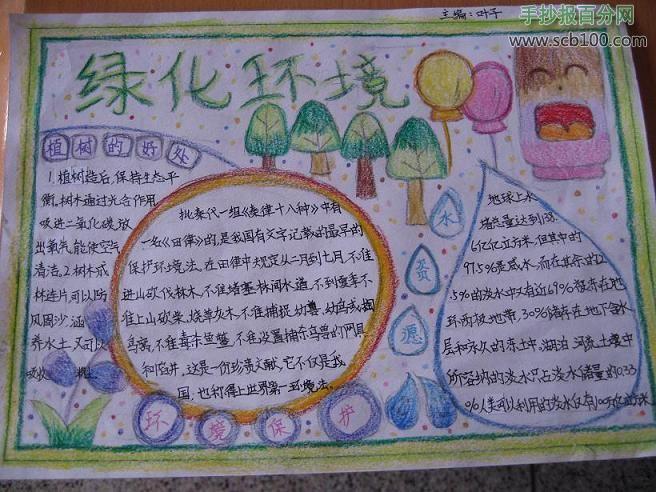 主编:叶子
手抄报百分网
www.scb100.com
绿化环境
植树的好处
1.植树造后,保持生态平
衡,树木通过光合作用
吸进二氧化碳,放
出氧气,能使空气
清洁。2.树木成
林连片,可以防
风固沙,涵
养水土,又可以
吸收
据秦代一组《秦律十八种》中有
一名《田律》的,是我国有文字记载的最早的
保护环境法。在田律中规定从二月到七月,不准
进山砍伐林木,不准堵塞林间水道,不到夏季不
准上山砍柴,烧草灰木,不准捕捉幼兽,幼鸟或掏
鸟窝,不准毒杀鱼鳖,不准设置捕杀鸟兽的网具
和陷井,这是一份珍贵文献,它不仅是我
国,也称得上世界第一环境法。
水
资
愿
地球上水
储总量达到138.
6亿亿立方米,但其中的
97.5%是咸水。而在其余的2
.5%的淡水中又有近69%程存在地
球两极地带,30%储存在地下含水
层和永久的冻土中。湖泊 河流 土壤中
所容纳的淡水只占淡水储量的0.33
%人类可以利用的淡水仅有
环境保护